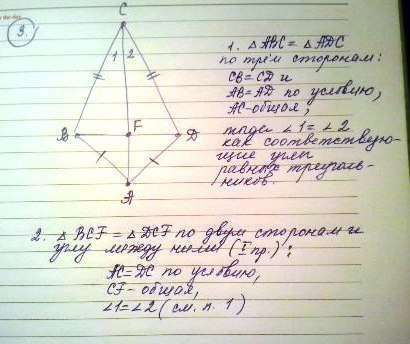 3.
C
1 2
B F D
A
1. △ABC = △ADC
по трём сторонам:
CB = CD и
AB = AD по условию,
AC - общая,
тогда ∠1 = ∠2
как соответствую-
щие углы
равных треуголь-
ников.
2. △BCF = △DCF по двум сторонам и
углу между ними (I пр.):
BC = DC по условию,
CF - общая,
∠1 = ∠2 (см. п. 1)